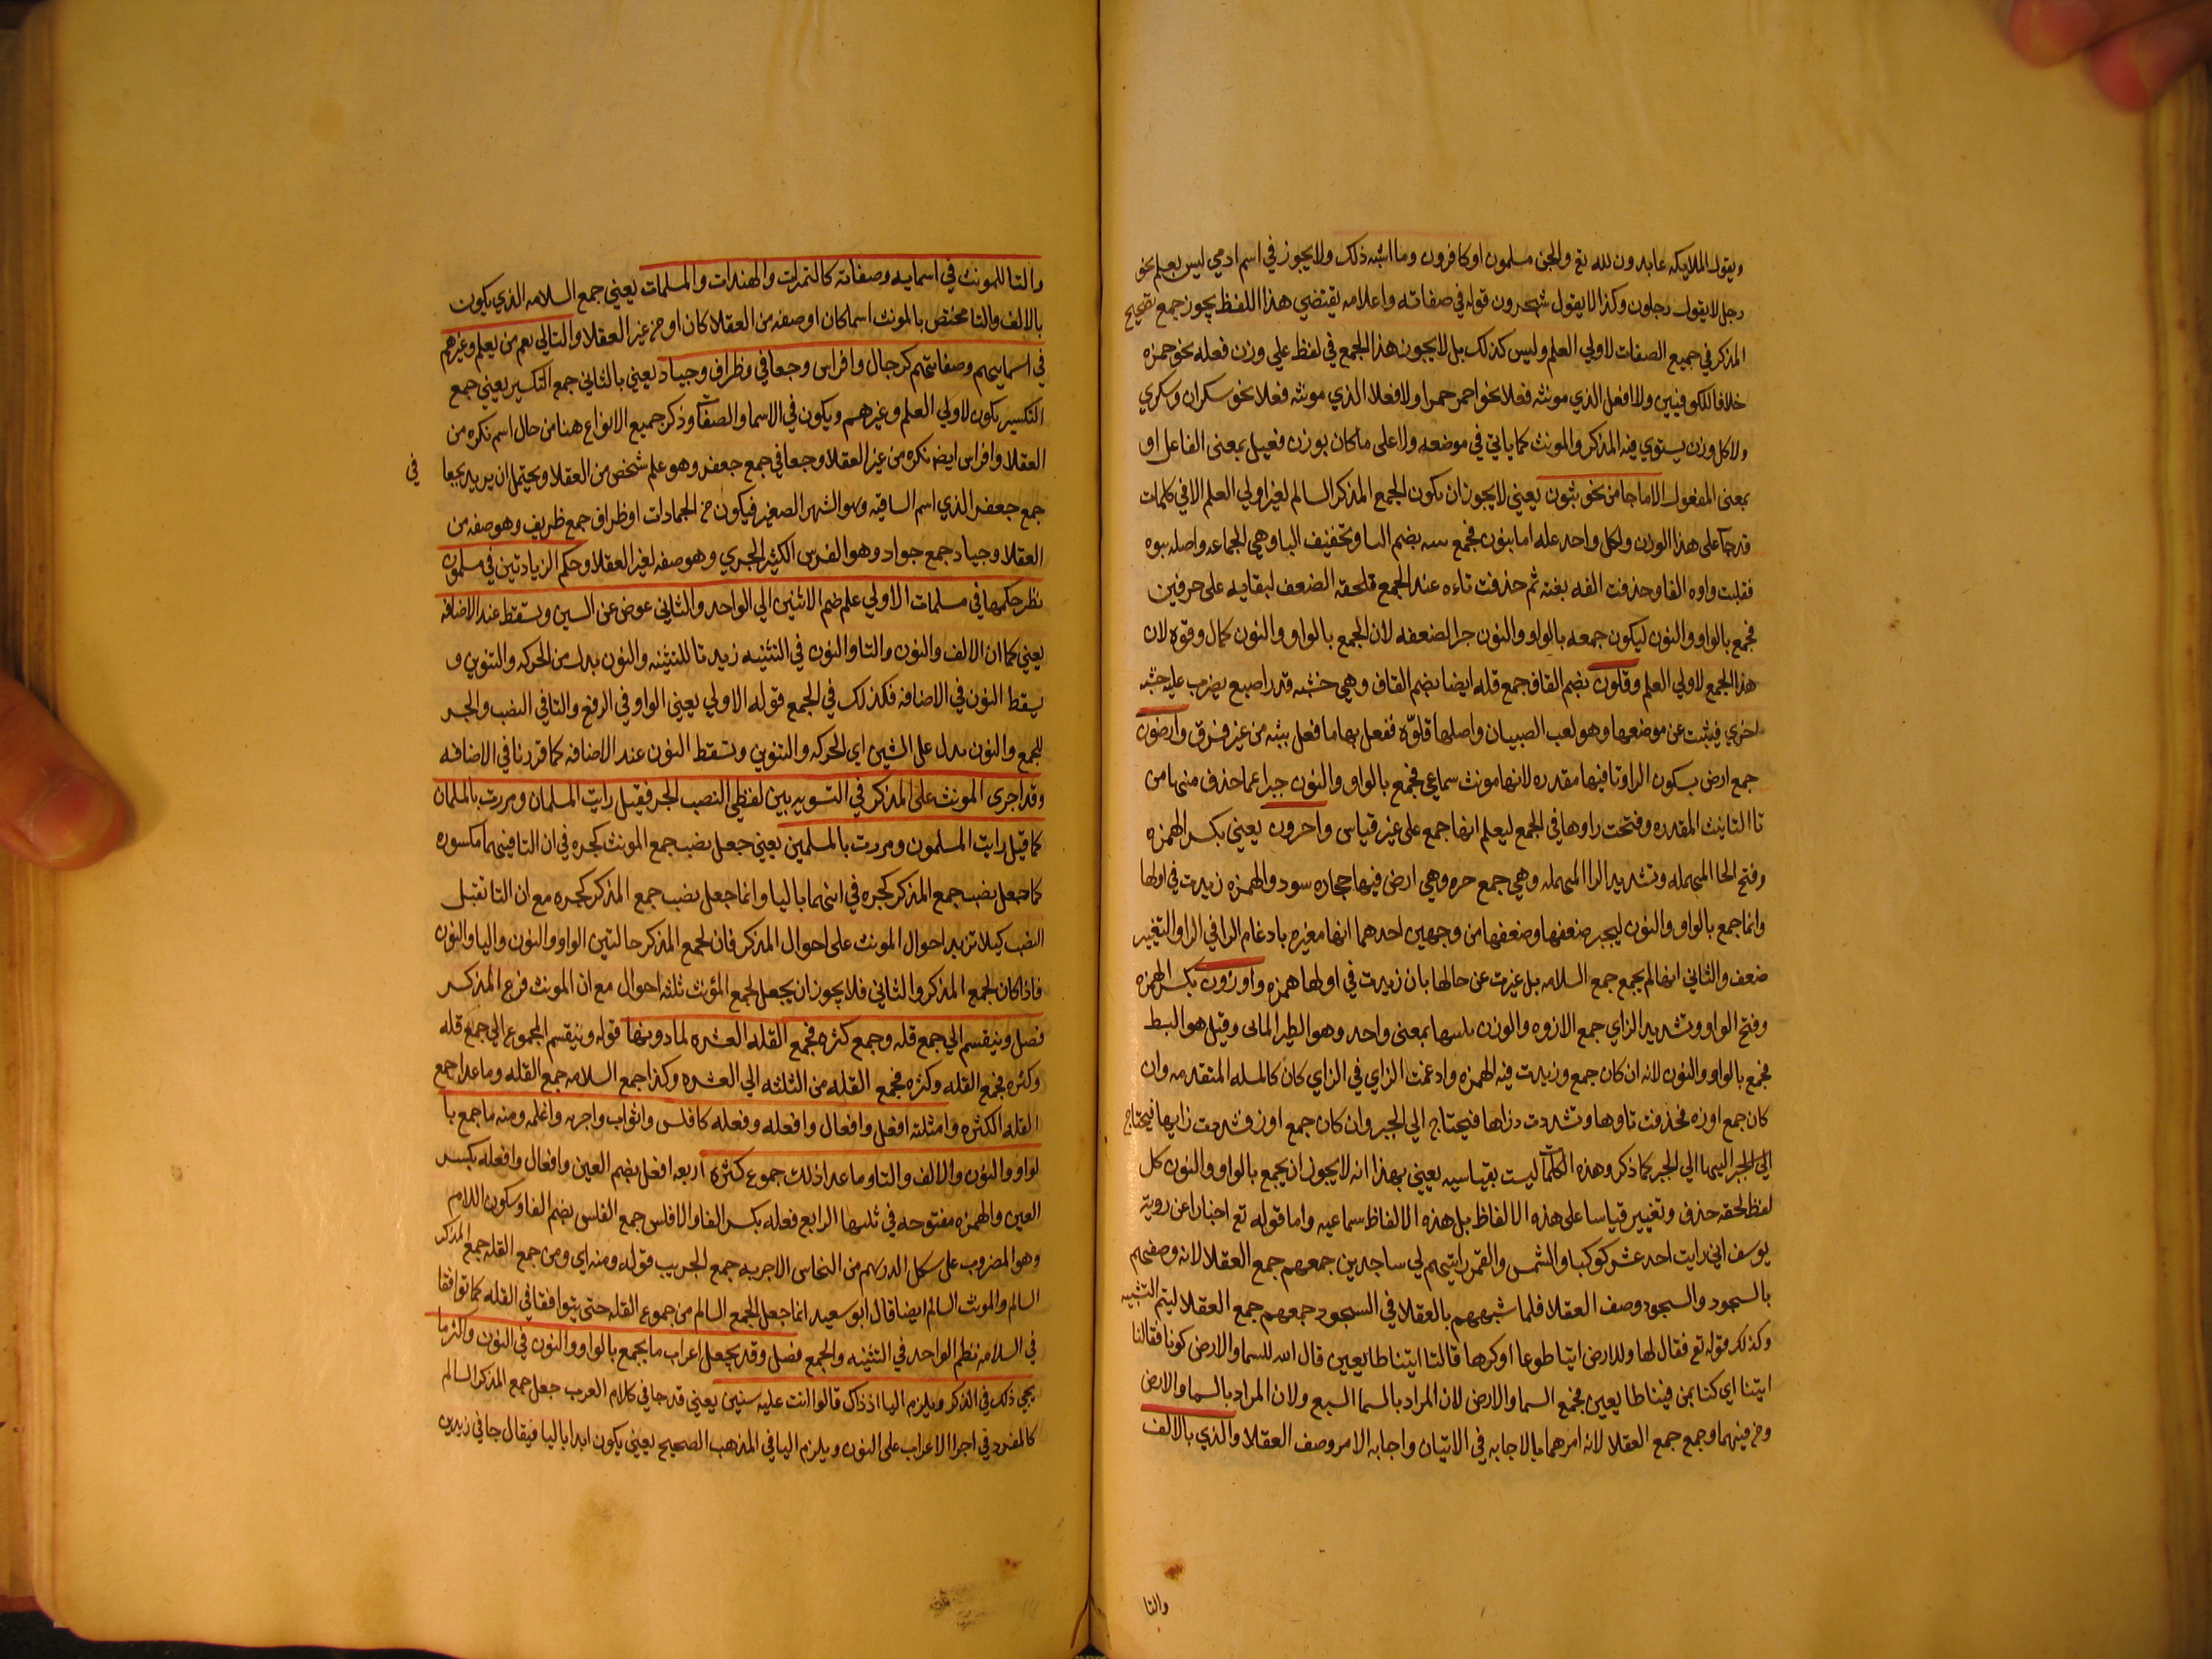 ويقول الملايكه عابدون لله تع والجن مسلمون او كافرون وما اشبه ذلك ولا يجوز في اسم ادمي ليس بعلم نحو
رجل لا يقول رجلون وكذا لا يقول شجرون قوله في صفاته واعلامه يقتضي هذا اللفظ يجوز جمع تصحيح
المذكر في جميع الصفات لاولي العلم وليس كذلك بل لا يجوز هذا الجمع في لفظ علي وزن فعله نحو حمزه
خلافا للكوفيين ولا افعل الذي مونثه فعلا نحو احمر حمرا ولا فعلا الذي مونثه فعلا نحو سكران وسكري
ولا كل وزن يستوي فيه المذكر والمونث كما ياتي في موضعه ولا اعلى ما كان بوزن فعيل بمعنى الفاعل او
بمعنى المفعول الا ما جا من نحو بثون يعني لا يجوز ان يكون الجمع المذكر السالم لغير اولي العلم الا في كلمات
قد جا على هذا الوزن ولكل واحد عله اما بثون فجمع ثبه بضم الثا وتخفيف البا وهي الجماعه واصله ثبوه
فقلبت واوه الفا وحذفت الفه بغته ثم حذفت تاءه عند الجمع فلحقه الضعف لبقايه على حرفين
فجمع بالواو والنون ليكون جمعه بالواو والنون جبرا لضعفه لان الجمع بالواو والنون كمال وقوه لان
هذا الجمع لاولي العلم وقلون بضم القاف جمع قله ايضا بضم القاف وهي خشبه قدر اصبع يضرب عليه خشبه
اخري فيثبت عن موضعها وهو لعب الصبيان واصلها قلوّه ففعل بها ما فعل بثبه من غير فرق وارضون
جمع ارض بسكون الرا وتا فيها مقدره لانها مونث سماعي فجمع بالواو والنون جبرا عما حذف منها من
تا التانيث المقدره وفتحت راوها في الجمع ليعلم انها جمع على غير قياس واحرون يعني بكسر الهمزه
وفتح الحا المهمله وتشديد الرا المهمله وهي جمع حره وهي ارض فيها حجاره سود والهمزه زيدت في اولها
وانما جمع بالواو والنون ليجبر ضعفها وضعفها من وجهين احدهما انها مغيره بادغام الرا في الرا والتغيير
ضعف والثاني انها لم يجمع جمع السلامه بل غيرت عن حالها بان زيدت في اولها همزه واوزون بكسر الهمزه
وفتح الواو وتشديد الزاي جمع الاوزه والوزن بمعنى واحد وهو الطير المائى وقيل هو البط
فجمع بالواو والنون لانه ان كان جمع وزيدت فيه الهمزه وادغمت الزاي في الزاي كان كالمسله المتقدمه وان
كان جمع اوزه فحذفت تاوها وتشددت زاها فيحتاج الي الجبر وان كان جمع اوز وشددت زايها فيحتاج
الي الجبر اليها الي الجبر كما ذكر وهذه الكلمات ليست بقياسيه يعني بهذا انه لا يجوز ان يجمع بالواو والنون كل
لفظ لحقه حذف وتغيير قياسا على هذه الالفاظ بل هذه الالفاظ سماعيه واما قوله تع اخبارا عن روية
يوسف اني رايت احد عشر كوكبا والشمس والقمر رايتهم لي ساجدين جمعهم جمع العقلا لانه وصفهم
بالسجود والسجود وصف العقلا فلما شبههم بالعقلا في السجود جمعهم جمع العقلا ليتم التشبيه
وكذلك قوله تع فقال لها وللارض ايتيا طوعا او كرها قالتا اتينا طايعين قال الله للسما والارض كونا فقالتا
اتينا اي كنا بمن فينا طايعين فجمع السما والارض لان المراد بالسما السبع ولان المراد بالسما والارض
ومن فيهما وجمع جمع العقلا لانه امرهما بالاجابه في الاتيان واجابه الامر وصف العقلا والذي بالالف
والتا
والتا للمونث في اسمايه وصفاته كالتمرات والهندات والمسلمات يعني جمع السلامه الذي يكون
بالالف والتا مختص بالمونث اسما كان او صفه من العقلا كان او من غير العقلا والثاني يعم من يعلم وغيرهم
في اسمايهم وصفاتهم كرجال وافراس وجعافر وظراف وجياد يعني بالثاني جمع التكسير يعني جمع
التكسير يكون لاولي العلم وغيرهم ويكون في الاسما والصفات وذكر جميع الانواع هنا من حال اسم نكره من
العقلا وافراس ايضه نكره من غير العقلا وجعافر جمع جعفر وهو علم شخص من العقلا ويحتمل ان يريد بجعا
في
جمع جعفر الذي اسم الساقيه وهو النهر الصغير فيكون من الجمادات او ظراف جمع ظريف وهو صفه من
العقلا وجياد جمع جواد وهو الفرس الكثير الجري وهو صفه لغير العقلا وحكم الزيادتين في مسلمون
نظير حكمها في مسلمات الاولي علم ضم الاثنين الي الواحد والثاني عوض عن الشيين وتسقط عند الاضافه
يعني كما ان الالف والنون والتا والنون في التثنيه زيدتا للتثنيه والنون بدل من الحركه والتنوين و
يسقط النون في الاضافه فكذلك في الجمع قوله الاولي يعني الواو في الرفع والتا في النصب والجر
للجمع والنون بدل على الشيين اي الحركه والتنوين وتسقط النون عند الاضافه كما قررنا في الاضافه
وقد اجرى المونث على المذكر في التسويه بين لفظي النصب الجر فقيل رايت المسلمات ومررت بالمسلمات
كما قيل رايت المسلمون ومررت بالمسلمين يعني جعل نصب جمع المونث كجره في ان التا فيهما مكسوره
كما جعل نصب جمع المذكر كجره في انهما باليا وانما جعل نصب جمع المذكر كجره مع ان التا تقبل
النصب كيلا تزيد احوال المونث على احوال المذكر فان لجمع المذكر حالتين الواو والنون واليا والنون
فاذا كان لجمع المذكر والثاني فلا يجوز ان يجعل لجمع المؤنث ثلثه احوال مع ان المونث فرع المذكر
فصل وينقسم الي جمع قله وجمع كثره فجمع القله العشره لما دونها قوله وينقسم المجموع الي جمع قله
وكثره فجمع القله وكثره فجمع القله من الثلثه الي العشره وكذا جمع السلامه جمع القله وما عدا جمع
القله الكثره وامثلته افعل وافعال وافعله وفعله كافلس واثواب واجربه واغلمه ومنه ما جمع با
لواو والنون والالف والتا وما عدا ذلك جموع كثرة اربعه افعل بضم العين وافعال وافعله بكسر
العين والهمزه مفتوحه في ثلثها الرابع فعله بكسر الفا والافلس جمع الفلس بضم الفا وسكون اللام
وهو المضروب على شكل الدرهم من النحاس الاجربه جمع الجريب قوله ومنه اي ومن جمع القله جمع المذكر
السالم والمونث السالم ايضا قال ابو سعيد انما جعل الجمع السالم من جموع القله حتى يتوافقا في القله كما توافقا
في السلامه نظم الواحد في التثنيه والجمع فصل وقد يجعل اعراب ما يجمع بالواو والنون في النون واكثر ما
يجي ذلك في الذكر ويلزم اليا اذ ذاك قالوا اتت عليه سنين يعني قد جا في كلام العرب جعل جمع المذكر السالم
كالمفرد في اجرا الاعراب على النون ويلزم اليا في المذهب الصحيح يعني يكون ابدا باليا فيقال جاني زيدين